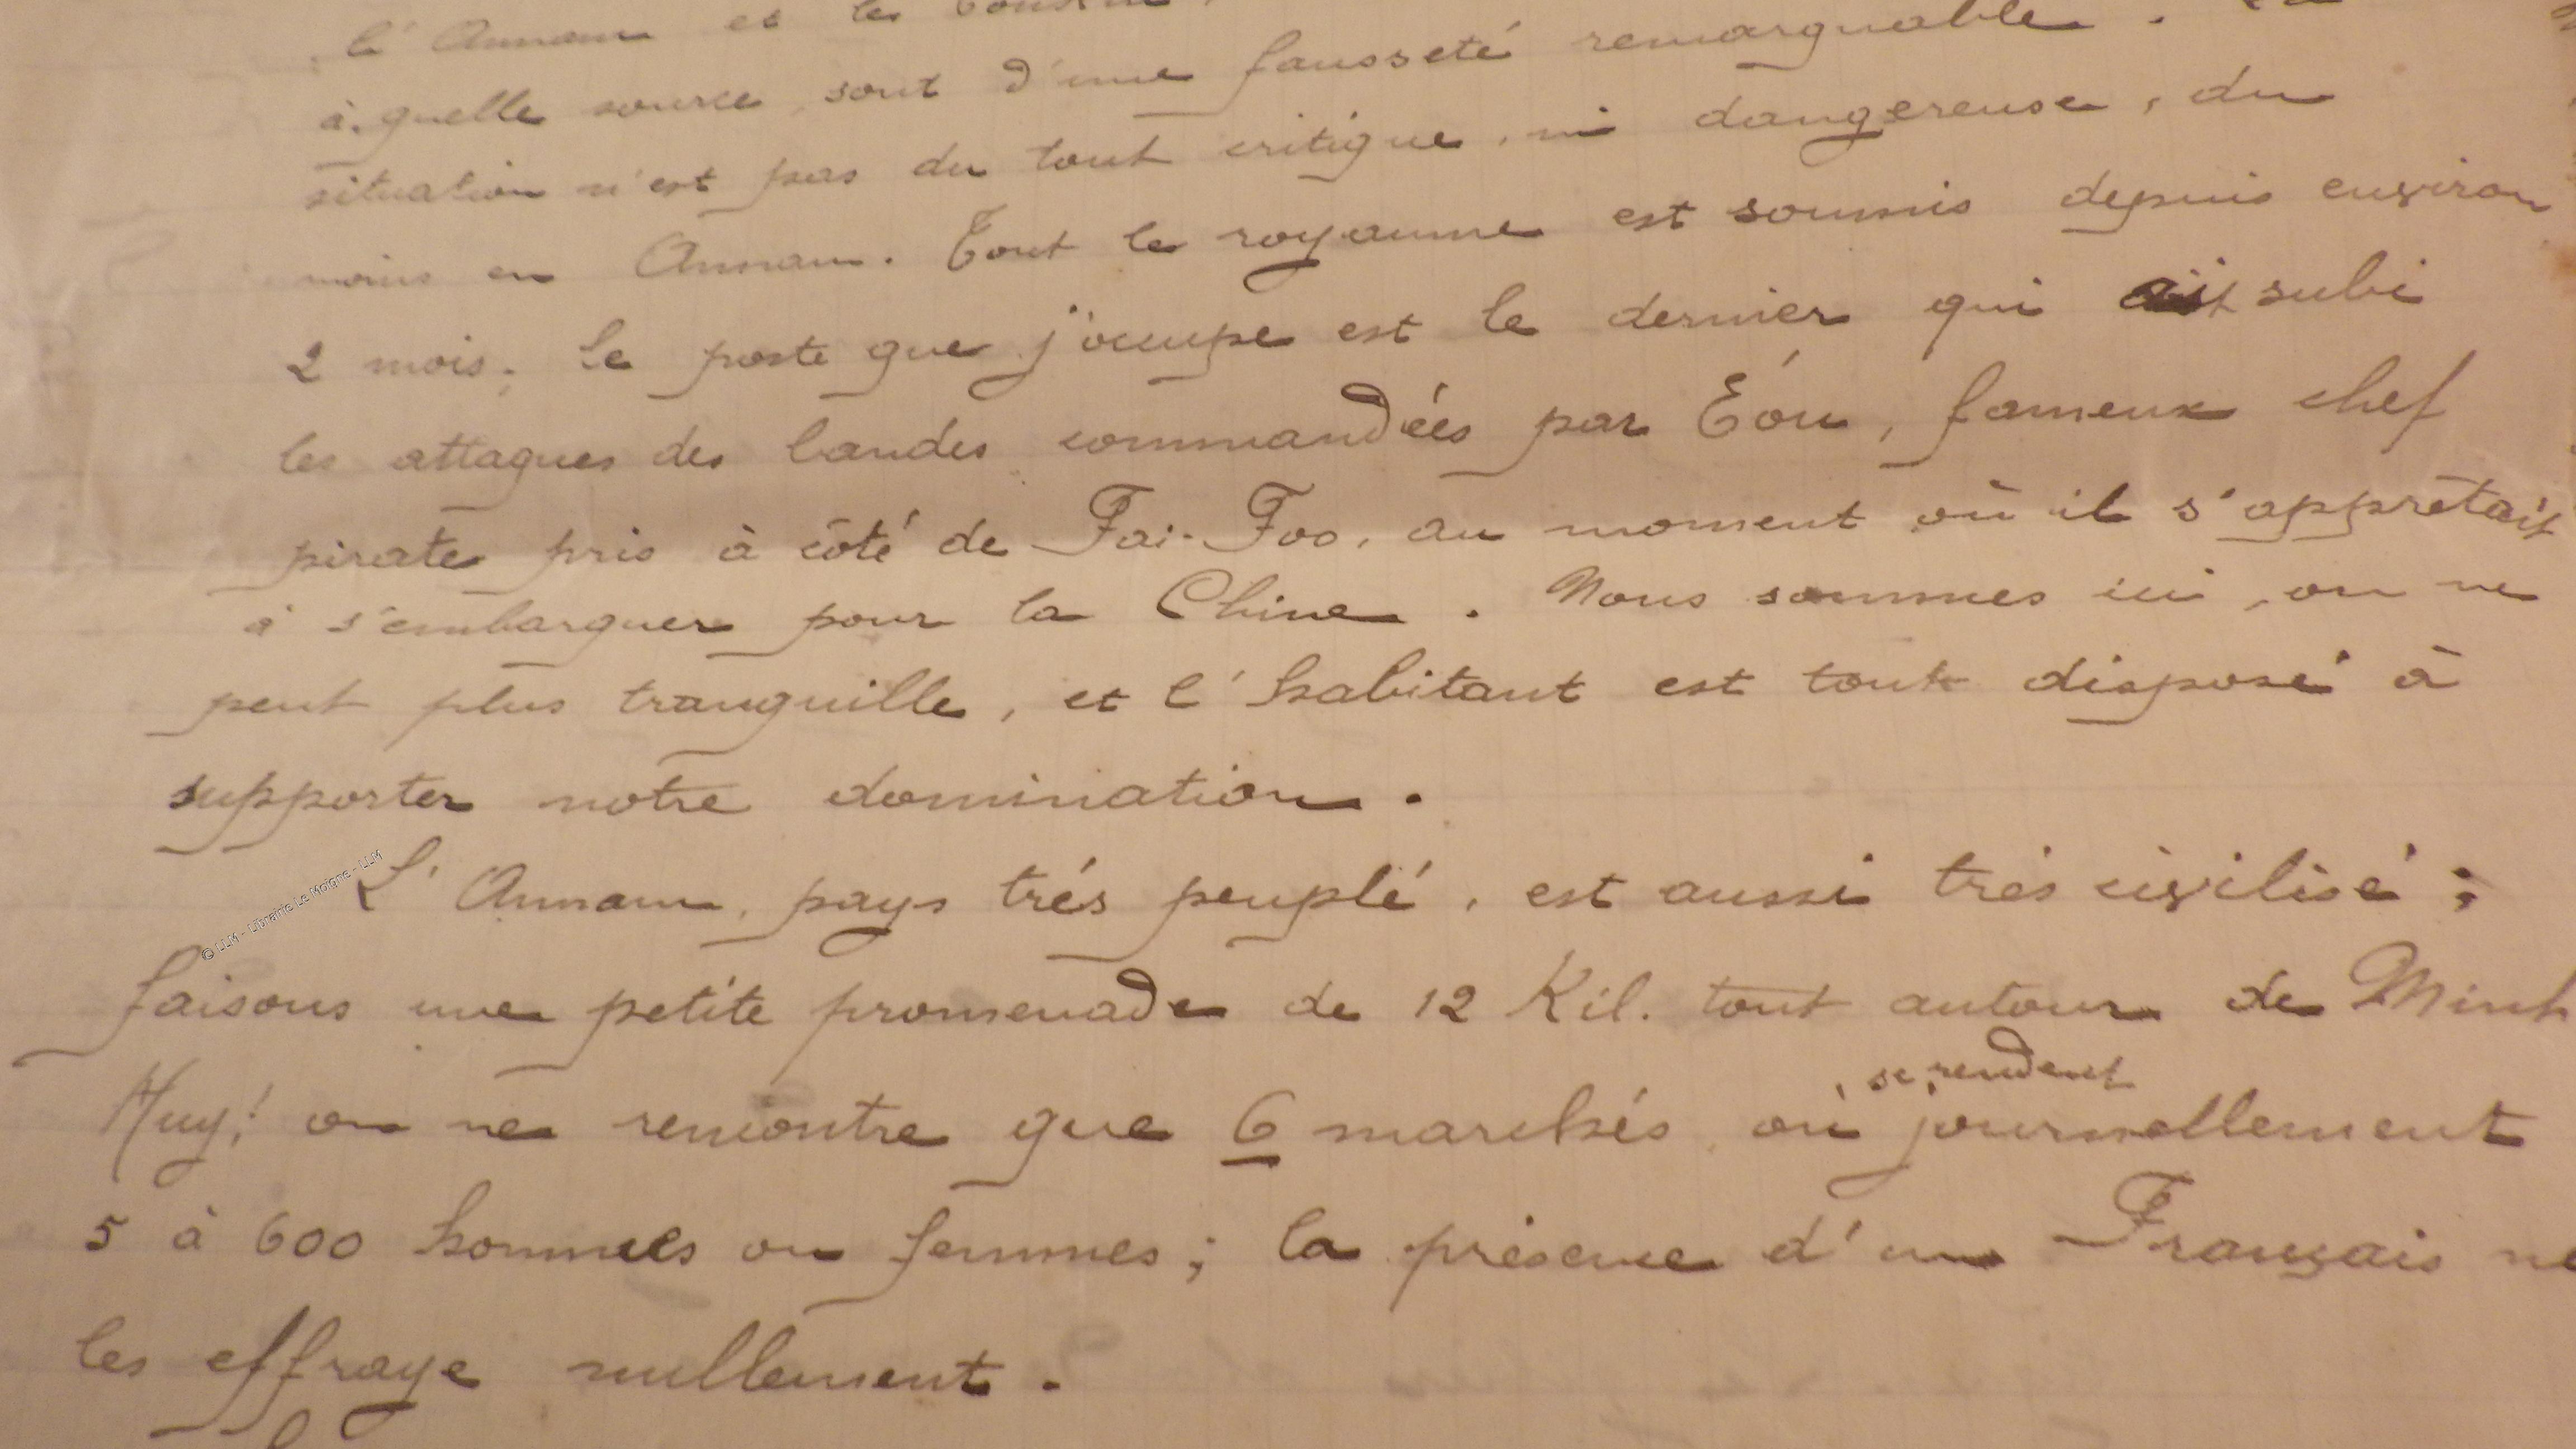 l'Annam et le
à quelle source, sont d'une fausseté remarquable. La
situation n'est pas du tout critique, ni dangereuse, du
moins en Annam. Tout le royaume est soumis depuis environ
2 mois. Le poste que j'occupe est le dernier qui ait subi
les attaques des bandes commandées par Eóu, fameux chef
pirate pris à côté de Fai-Foo, au moment où il s'apprêtait
à s'embarquer pour la Chine. Nous sommes ici, on ne
peut plus tranquille, et l'habitant est tout disposé à
supporter notre domination.
L'Annam, pays trés peuplé, est aussi trés civilisé ;
faisons une petite promenade de 12 Kil. tout autour de Minh
se rendent
Huy! on ne rencontre que 6 marchés, où journellement
5 à 600 hommes ou femmes ; la présence d'un Français ne
les effraye nullement.
© LLM - Librairie Le Moigne - LLM